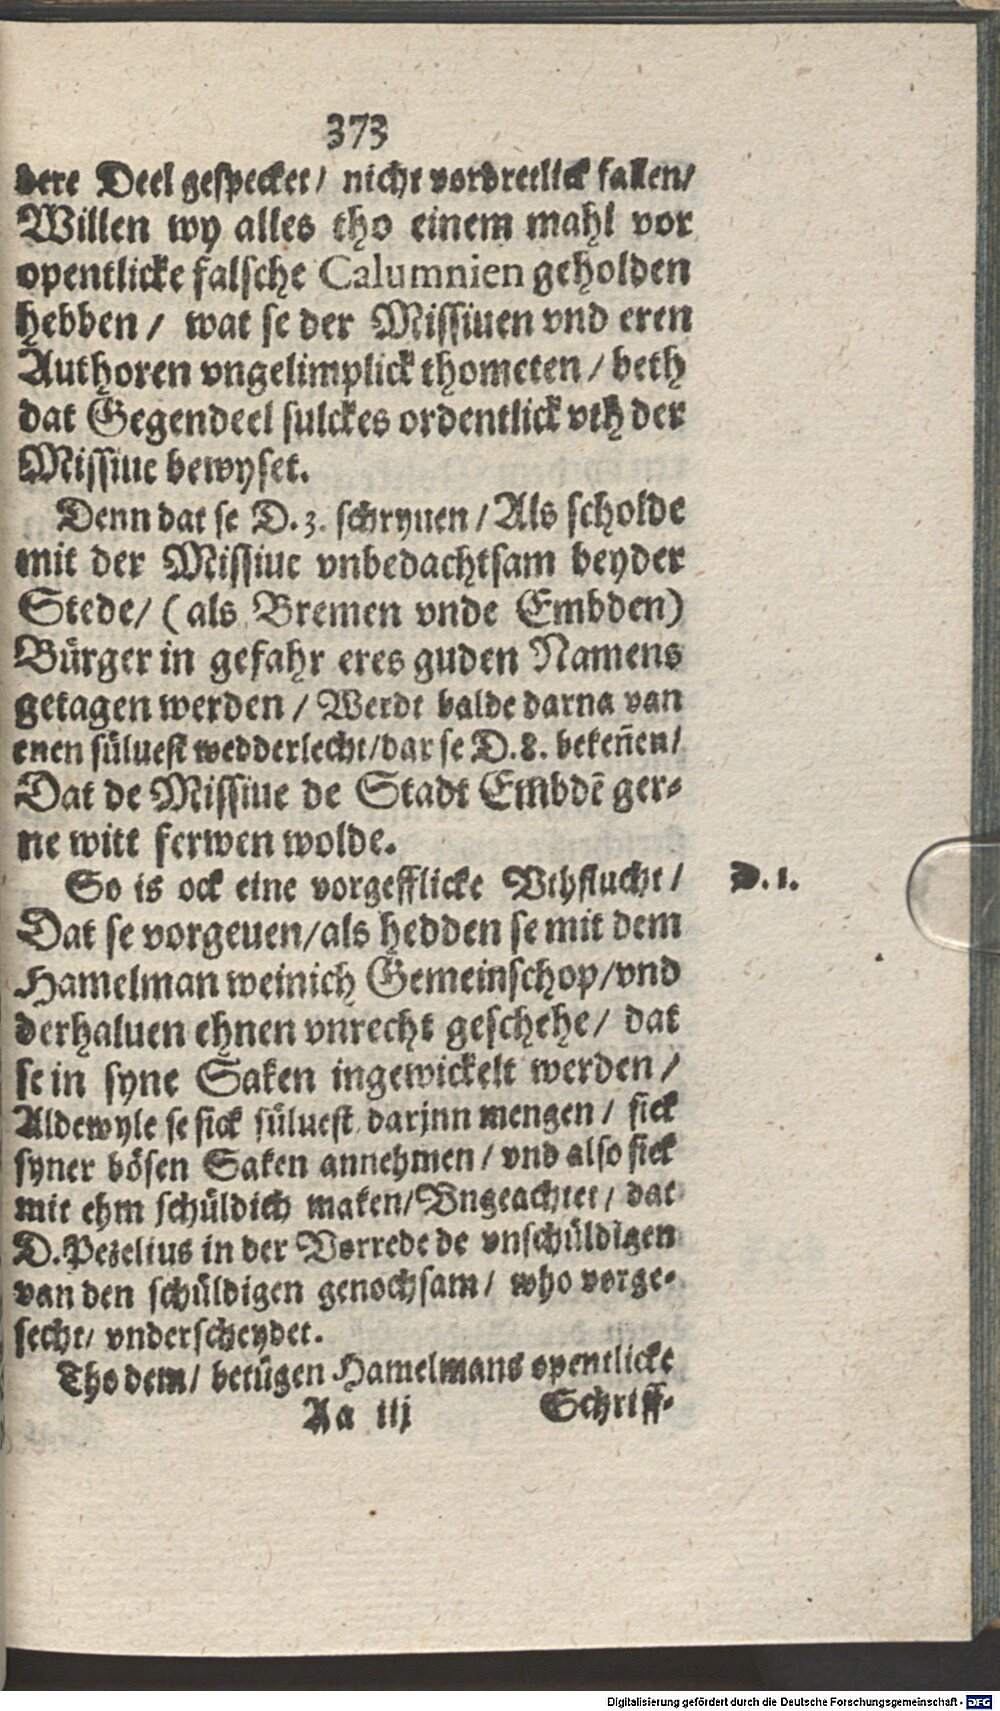 373
dere Deel gespecket/ nicht vordretlick fallen/
Willen wy alles tho einem mahl vor
opentlicke falsche Calumnien geholden
hebben / wat se der Missiuen vnd eren
Authoren vngelimplick thometen / beth
dat Gegendeel sulckes ordentlick vth der
Missiue bewyset.
Denn dat se D.3. schryuen / Als scholde
mit der Missiue vnbedachtsam beyder
Stede/ (als Bremen vnde Embden)
Bürger in gefahr eres guden Namens
getagen werden / Werdt balde darna van
enen süluest wedderlecht/dar se D.8. bekeñen/
Dat de Missiue de Stadt Embdē ger-
ne witt ferwen wolde.
So is ock eine vorgefflicke Vthflucht /
D. 1.
Dat se vorgeuen/als hedden se mit dem
Hamelman weinich Gemeinschop/vnd
derhaluen ehnen vnrecht geschehe/ dat
se in syne Saken ingewickelt werden /
Aldewyle se sick süluest darjnn mengen / sick
syner bösen Saken annehmen / vnd also sick
mit ehm schüldich maken/Vngeachtet / dat
D.Pezelius in der Vorrede de vnschüldigen
van den schüldigen genochsam/ who vorge-
secht/ vnderscheydet.
Tho dem/ betügen Hamelmans opentlicke
Aa iij Schriff-
Digitalisierung gefördert durch die Deutsche Forschungsgemeinschaft - DFG